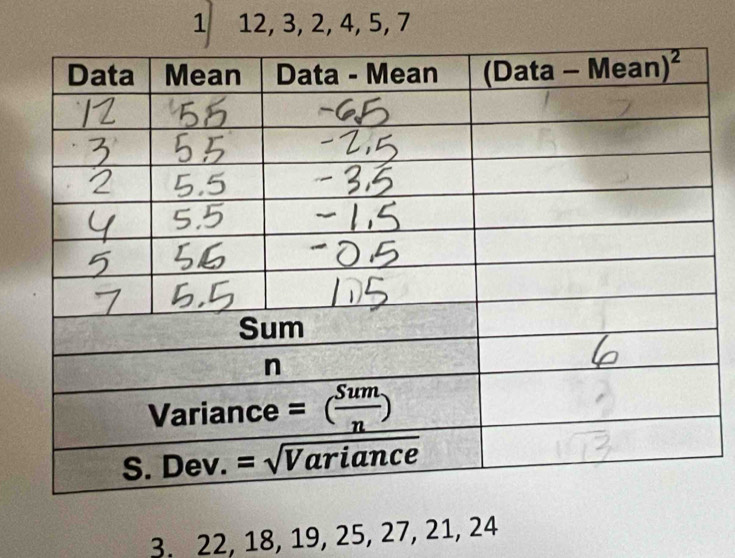 1) 12, 3, 2, 4, 5, 7
Data Mean Data - Mean (Data – Mean)²
12 5.5 -6.5
3 5.5 -2.5
2 5.5 -3.5
4 5.5 -1.5
5 5.5 -0.5
7 5.5 1.5
Sum
n 6
Variance = (Sum/n)
S. Dev. = √Variance
3. 22, 18, 19, 25, 27, 21, 24